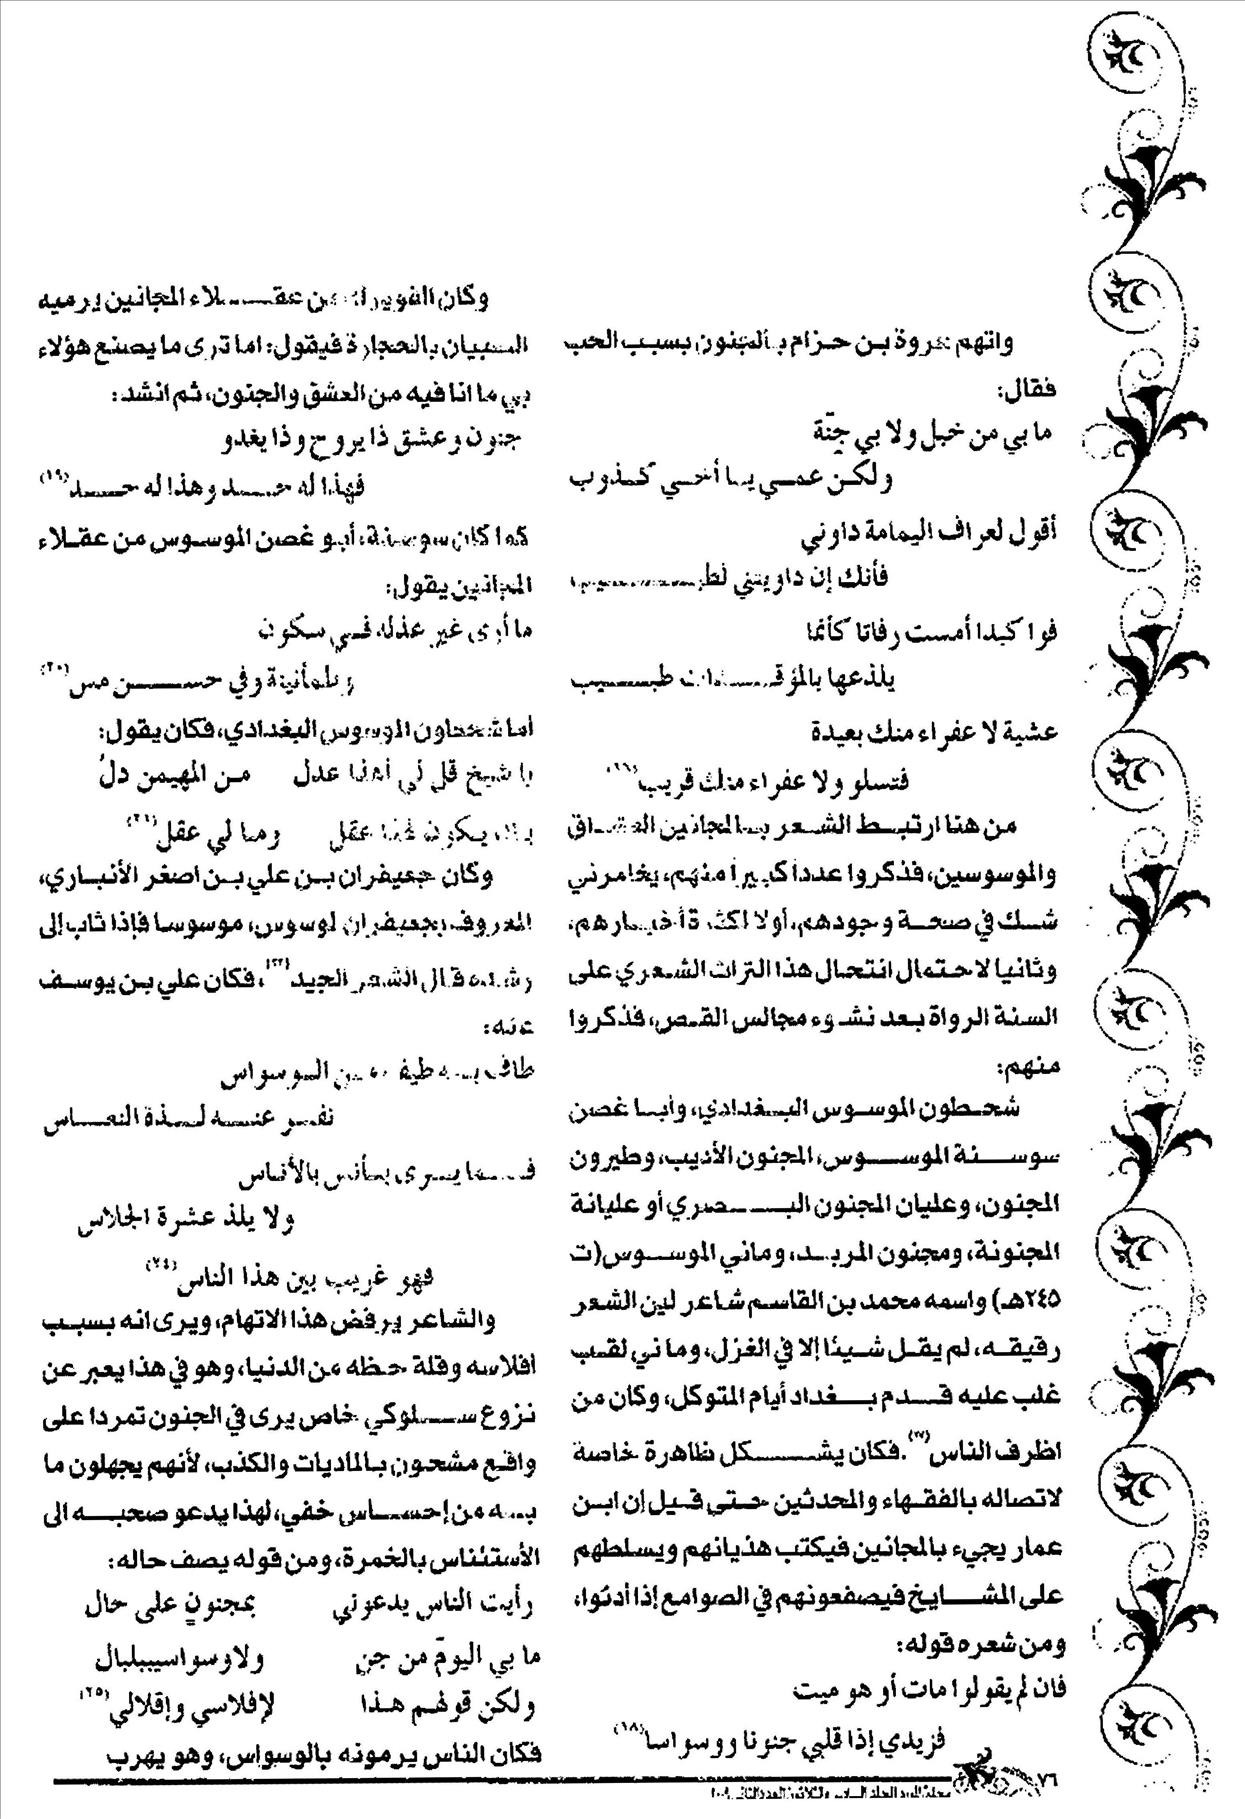 واتهم عروة بن حزام بالجنون بسبب الحب
فقال:
ما بي من خبل ولا بي جِنّة
ولكن عمي يا أخي كذوب
أقول لعراف اليمامة داوني
فأنك إن داويتني لطبيب
فوا كبدا أمست رفاتا كأنما
يلذعها بالموقدات طبيب
عشية لا عفراء منك بعيدة
فتسلو ولا عفراء منك قريب(١٦)
من هنا ارتبط الشعر بالمجانين العشاق
والموسوسين، فذكروا عددا كبيرا منهم، يخامرني
شك في صحة وجودهم، أولا لكثرة أخبارهم،
وثانيا لاحتمال انتحال هذا التراث الشعري على
السنة الرواة بعد نشوء مجالس القص، فذكروا
منهم:
شحطون الموسوس البغدادي، وأبا غصن
سوسنة الموسوس، المجنون الأديب، وطيرون
المجنون، وعليان المجنون البصري أو عليانة
المجنونة، ومجنون المربد، وماني الموسوس(ت
٢٤٥هـ) واسمه محمد بن القاسم شاعر لين الشعر
رقيقه، لم يقل شيئا إلا في الغزل، وماني لقب
غلب عليه قدم بغداد أيام المتوكل، وكان من
اظرف الناس(١٧). فكان يشكل ظاهرة خاصة
لاتصاله بالفقهاء والمحدثين حتى قيل إن ابن
عمار يجيء بالمجانين فيكتب هذيانهم ويسلطهم
على المشايخ فيصفعونهم في الصوامع إذا أدنوا،
ومن شعره قوله:
فان لم يقولوا مات أو هو ميت
فزيدي إذا قلبي جنونا ووسواسا(١٨)
وكان من عقلاء المجانين يرميه
الصبيان بالحجارة فيقول: اما ترى ما يصنع هؤلاء
بي ما انا فيه من العشق والجنون، ثم انشد:
جنون وعشق ذا يروح وذا يغدو
فهذا له حد وهذا له حد(١٩)
كما كان سوسنة، أبو غصن الموسوس من عقلاء
المجانين يقول:
ما أرى غير عذله في سكون
وطمأنينة وفي حسن مس(٢٠)
اما شحطون الموسوس البغدادي، فكان يقول:
يا شيخ قل لي أهذا عدل من المهيمن دلُ
يكون لهذا عقل وما لي عقل(٢١)
وكان جعيفران بن علي بن اصغر الأنباري،
المعروف بجعيفران لوسوس، موسوسا فإذا ثاب إلى
رشده قال الشعر الجيد(٢٣)، فكان علي بن يوسف
عنه:
طاف به طيف من الوسواس
نفر عنه لذة النعاس
فما يرى يأنس بالأناس
ولا يلذ عشرة الجلاس
فهو غريب بين هذا الناس(٢٤)
والشاعر يرفض هذا الاتهام، ويرى انه بسبب
افلاسه وقلة حظه من الدنيا، وهو في هذا يعبر عن
نزوع سلوكي خاص يرى في الجنون تمردا على
واقع مشحون بالماديات والكذب، لأنهم يجهلون ما
به من إحساس خفي، لهذا يدعو صحبه الى
الأستئناس بالخمرة، ومن قوله يصف حاله:
رأيت الناس يدعوني بمجنونٍ على حال
ما بي اليومَ من جن ولاوسواسيببلبال
ولكن قولهم هذا لإفلاسي وإقلالي(٢٥)
فكان الناس يرمونه بالوسواس، وهو يهرب
٧٦
مجلة المورد المجلد السادس والثلاثون العدد الثاني ٢٠٠٩